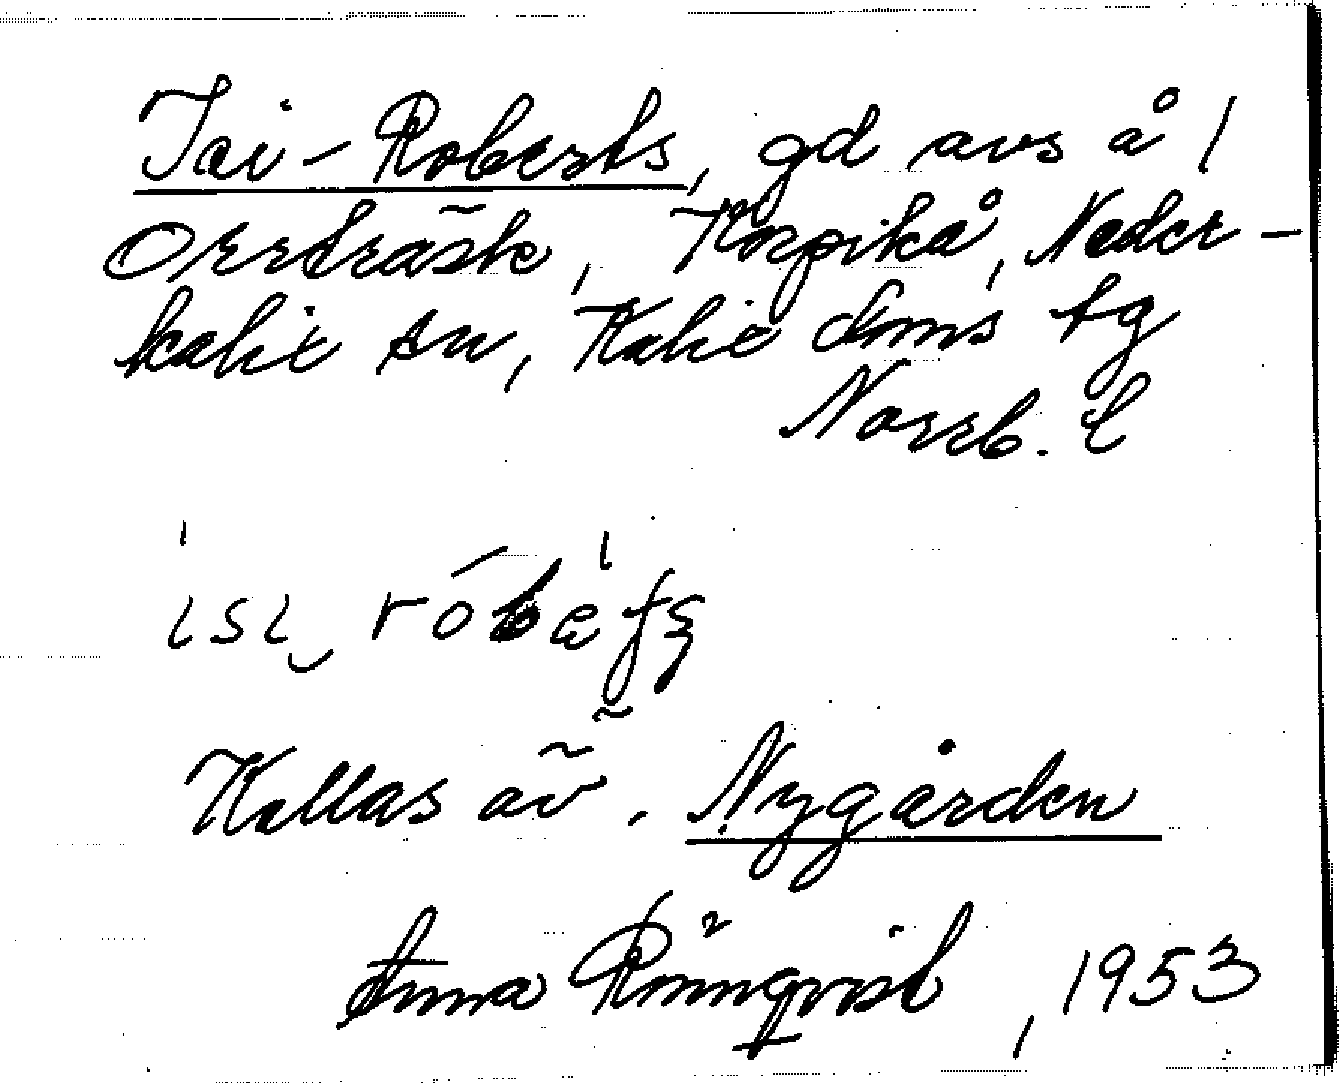 Isi-Roberts, gd avs å /
Orrträsk, Korpikå, Neder-
kalix sn, Kalix doms tg
Norrb. l
Kallas äv. Nygården
Anna Rönnqvist, 1953